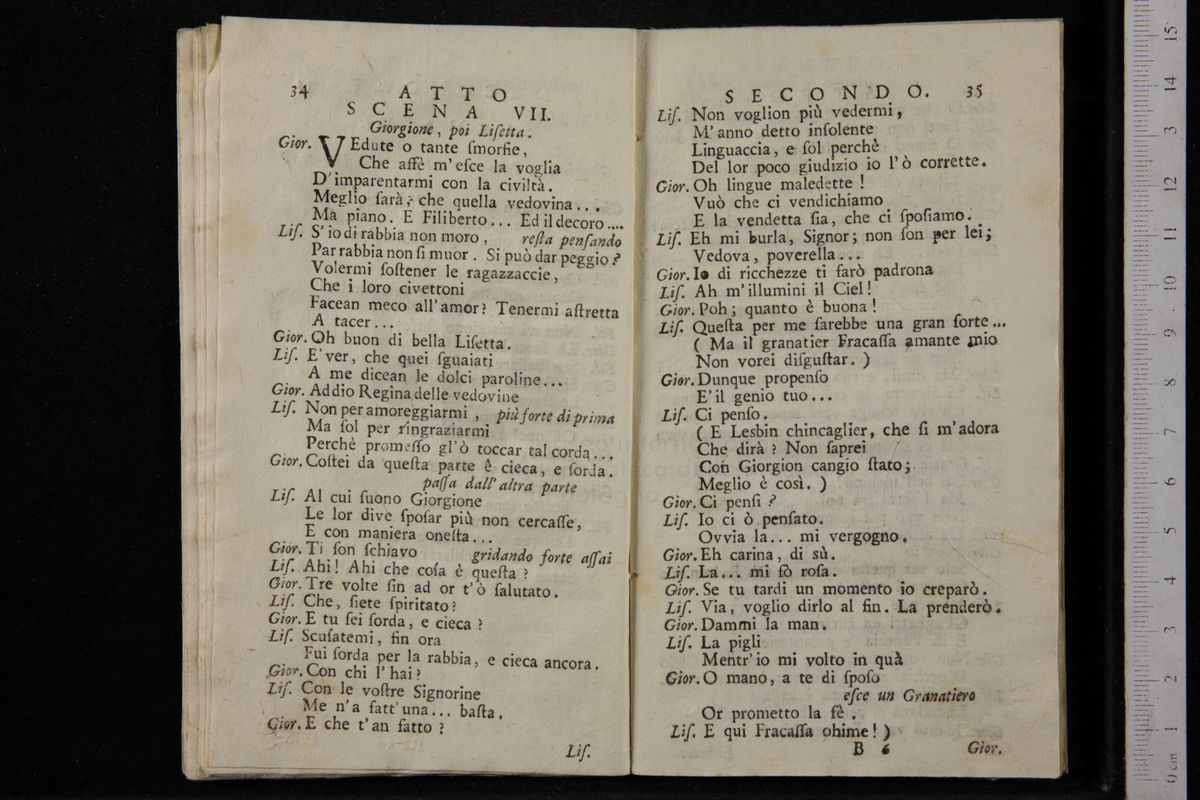 34 ATTO
SCENA VII.
Giorgione, poi Liſetta.
Gior. VEdute o tante ſmorfie,
Che affè m'eſce la voglia
D'imparentarmi con la civiltà.
Meglio farà; che quella vedovina...
Ma piano. E Filiberto... Ed il decoro....
Liſ. S'io di rabbia non moro, reſta penſando
Par rabbia non ſi muor. Si può dar peggio?
Volermi ſoſtener le ragazzaccie,
Che i loro civettoni
Facean meco all'amor? Tenermi aſtretta
A tacer...
Gior. Oh buon di bella Liſetta.
Liſ. E'ver, che quei ſguaiati
A me dicean le dolci paroline...
Gior. Addio Regina delle vedovine
Liſ. Non per amoreggiarmi, più forte di prima
Ma ſol per ringraziarmi
Perchè promeſſo gl'ò toccar tal corda...
Gior. Coſtei da queſta parte è cieca, e ſorda.
paſſa dall'altra parte
Liſ. Al cui ſuono Giorgione
Le lor dive ſpoſar più non cercaſſe,
E con maniera oneſta...
Gior. Ti ſon ſchiavo gridando forte aſſai
Liſ. Ahi! Ahi che coſa è queſta?
Gior. Tre volte fin ad or t'ò ſalutato.
Liſ. Che, ſiete ſpiritato?
Gior. E tu ſei ſorda, e cieca?
Liſ. Scuſatemi, fin ora
Fui ſorda per la rabbia, e cieca ancora.
Gior. Con chi l'hai?
Liſ. Con le voſtre Signorine
Me n'a fatt'una... baſta.
Gior. E che t'an fatto?
Liſ.
SECONDO. 35
Liſ. Non voglion più vedermi,
M'anno detto inſolente
Linguaccia, e ſol perchè
Del lor poco giudizio io l'ò corrette.
Gior. Oh lingue maledette!
Vuò che ci vendichiamo
E la vendetta ſia, che ci ſpoſiamo.
Liſ. Eh mi burla, Signor; non ſon per lei;
Vedova, poverella...
Gior. Io di ricchezze ti farò padrona
Liſ. Ah m'illumini il Ciel!
Gior. Poh; quanto è buona!
Liſ. Queſta per me ſarebbe una gran ſorte...
( Ma il granatier Fracaſſa amante mio
Non vorei diſguſtar. )
Gior. Dunque propenſo
E'il genio tuo...
Liſ. Ci penſo.
( E Lesbin chincaglier, che ſi m'adora
Che dirà? Non ſaprei
Con Giorgion cangio ſtato;
Meglio è così. )
Gior. Ci penſi?
Liſ. Io ci ò penſato.
Ovvia la... mi vergogno.
Gior. Eh carina, di sù.
Liſ. La... mi fò roſa.
Gior. Se tu tardi un momento io creparò.
Liſ. Via, voglio dirlo al fin. La prenderò.
Gior. Dammi la man.
Liſ. La pigli
Mentr'io mi volto in quà
Gior. O mano, a te di ſpoſo
eſce un Granatiero
Or prometto la fè.
Liſ. E qui Fracaſſa ohime! )
B 6 Gior.